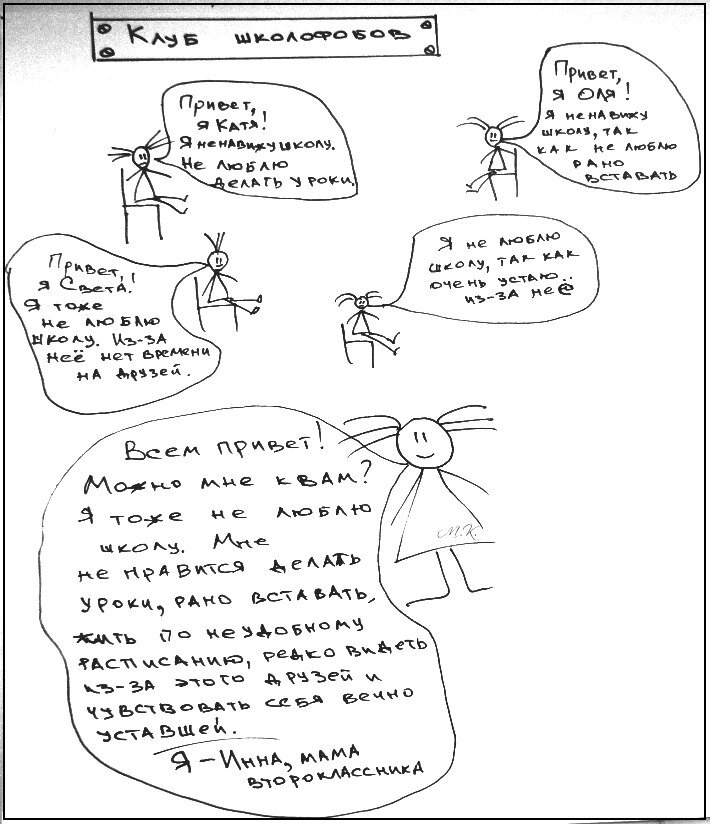 Клуб школофобов
Привет,
я Катя!
Я ненавижу школу.
Не люблю
делать уроки.
Привет,
я Оля!
Я ненавижу
школу, так
как не люблю
рано
вставать
Привет,
я Света!
Я тоже
не люблю
школу. Из-за
неё нет времени
на друзей.
Я не люблю
школу, так как
очень устаю
из-за неё
Всем привет!
Можно мне к вам?
Я тоже не люблю
школу. Мне
не нравится делать
уроки, рано вставать,
жить по неудобному
расписанию, редко видеть
из-за этого друзей и
чувствовать себя вечно
уставшей.
Я – Инна, мама
второклассника
М.К.